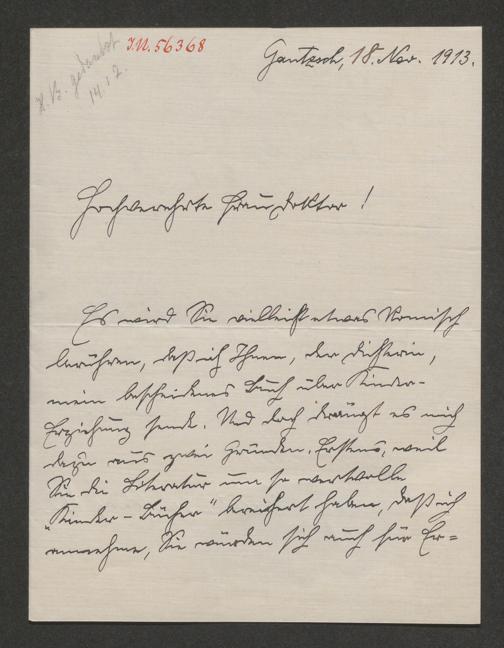 J.N. 56368
H. B. gedankt
14. 12.
Gautzsch, 18. Nov. 1913.
Hochverehrte Frau Doktor!
Es wird Sie vielleicht etwas komisch
berühren, daß ich Ihnen, der Dichterin,
mein bescheidenes Buch über Kinder-
Erziehung sende. Und doch drängt es mich
dazu aus zwei Gründen. Erstens, weil
Sie die Literatur um so wertvolle
„Kinder-Bücher“ bereichert haben, daß ich
annehme, Sie würden sich auch für Er=